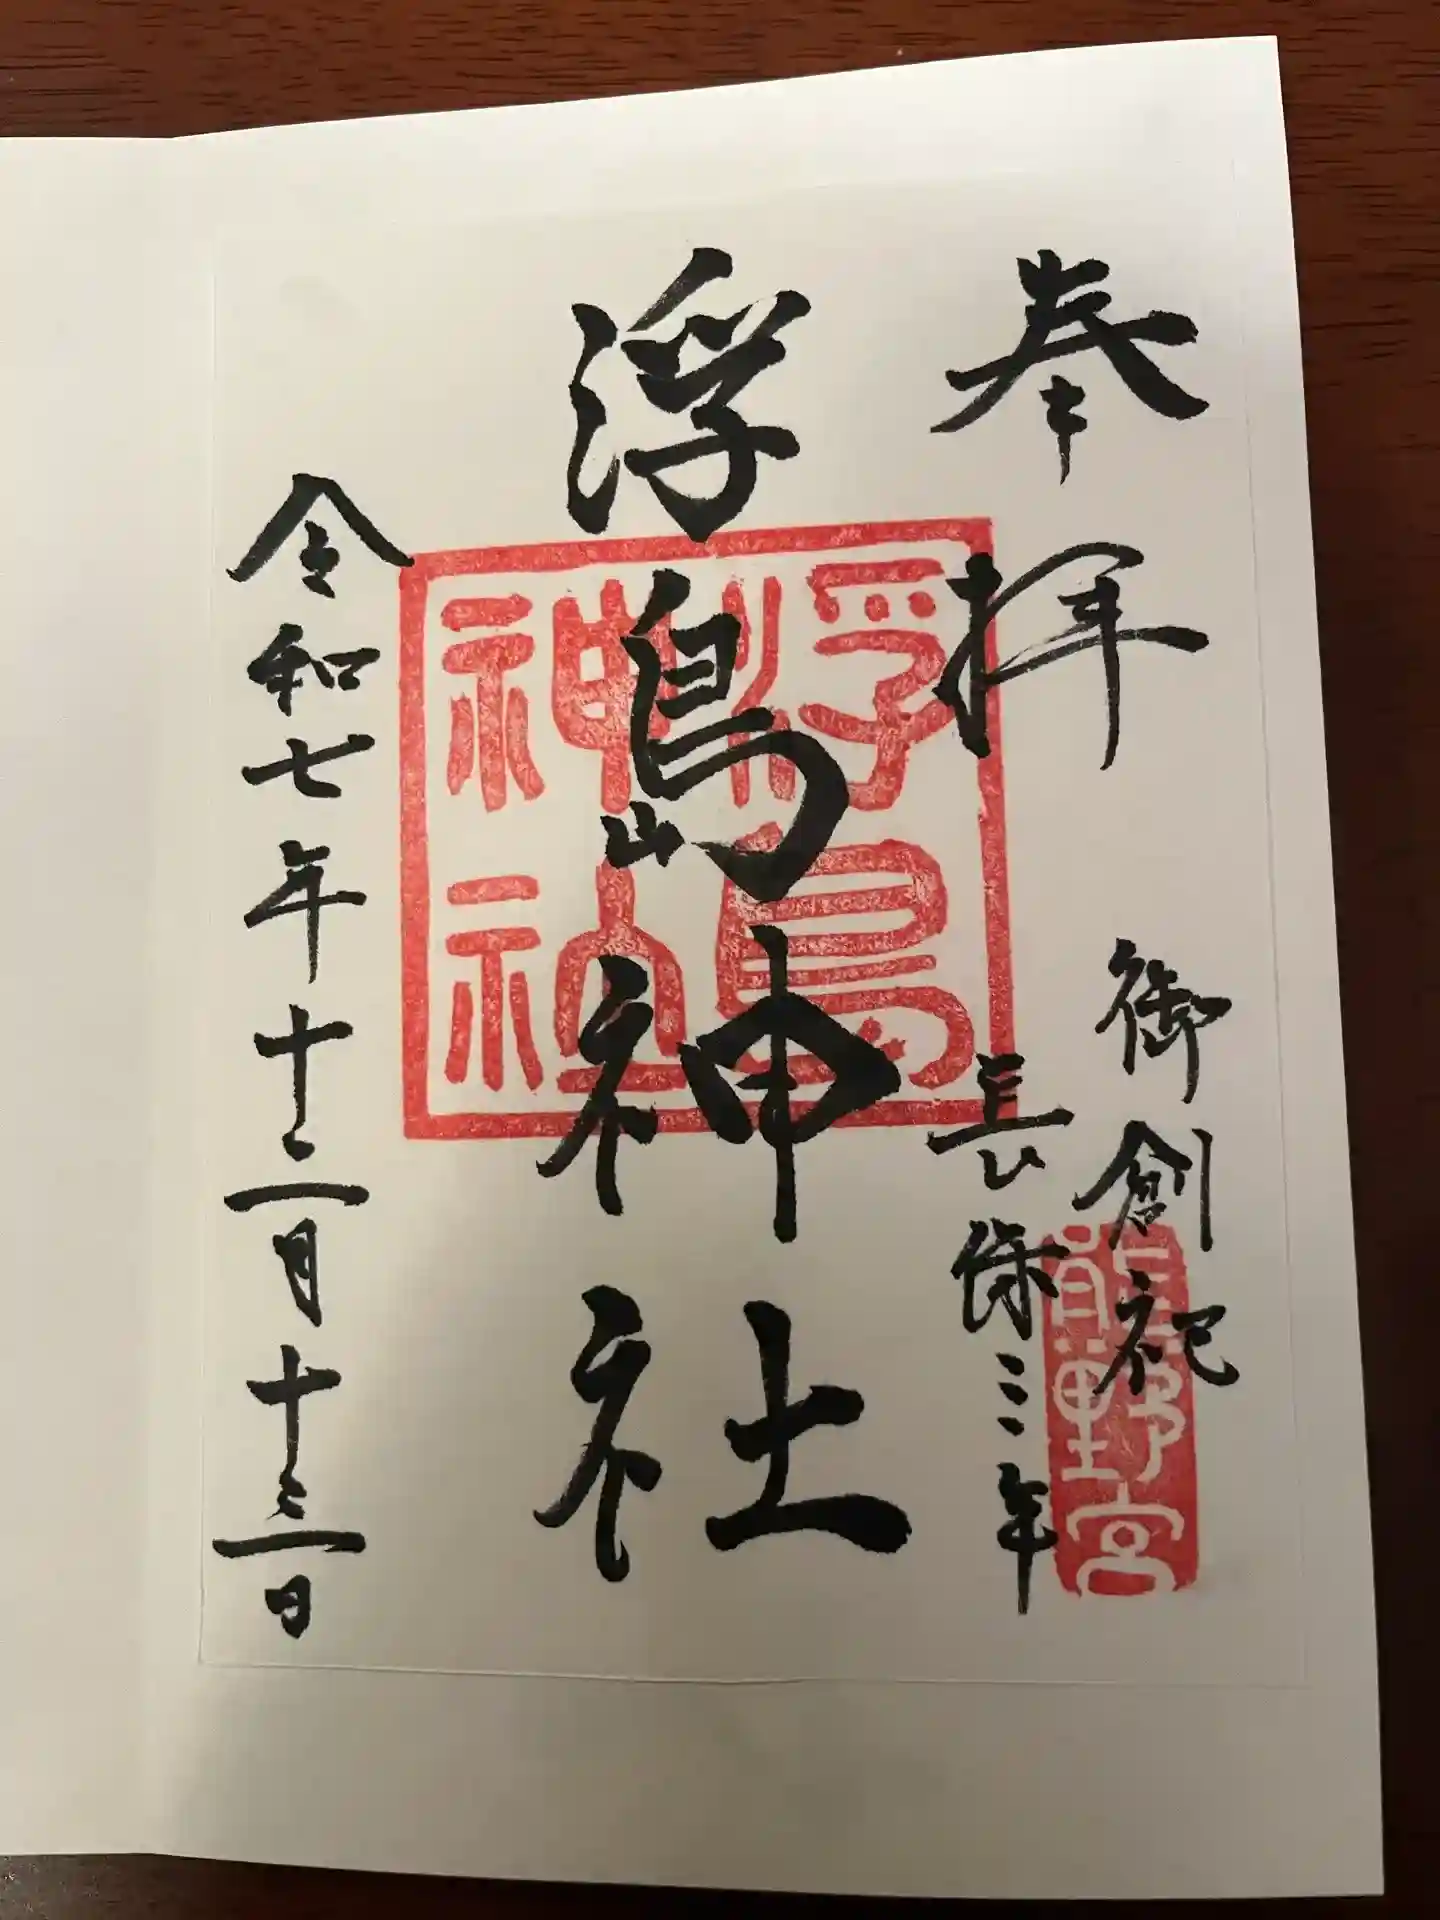 奉拝
御創祀
長保三年
熊野宮
浮島神社
浮島神社
令和七年十二月十三日